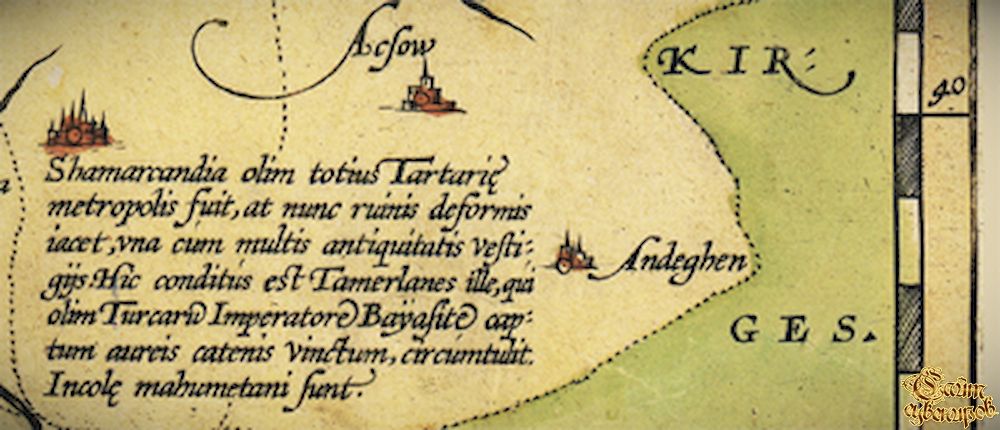 Acsow
KIR
40
Shamarcandia olim totius Tartarię
metropolis fuit, at nunc ruinis deformis
iacet, vna cum multis antiquitatis vesti-
gijs. Hic conditus est Tamerlanes ille, qui
olim Turcarū Imperatorē Bayasitē cap-
tum aureis catenis vinctum, circumtulit.
Incolę mahumetani sunt.
Andęghen
GES.
Сайт
суверенов